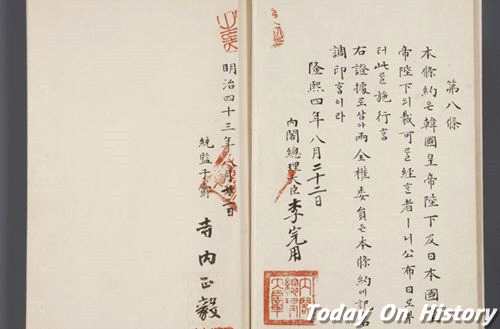 第八條
本條約은韓國皇帝陛下及日本國
帝陛下의裁可를經ᄒᆞᆫ者ㅣ니公布日로
터此를施行ᄒᆞᆷ
右證據로삼아兩全權委員은本條約에記
調印ᄒᆞᆷ이라
隆熙四年八月二十二日
內閣總理大臣 李完用
明治四十三年八月廿二日
統監子爵 寺內正毅
Today On History